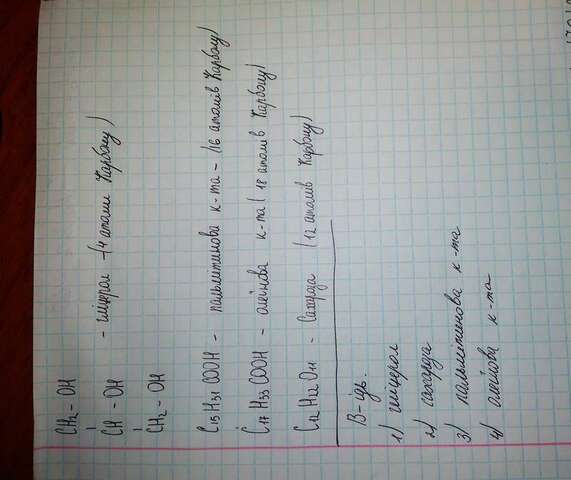 CH₂ - OH
CH - OH - гліцерол - (4 атоми Карбону)
CH₂ - OH
C₁₅H₃₁COOH - пальмітинова к-та - (16 атомів Карбону)
C₁₇H₃₃COOH - олеїнова к-та (18 атомів Карбону)
C₁₂H₂₂O₁₁ - Сахароза (12 атомів Карбону)
В-ідь.
1) гліцерол
2) сахароза
3) пальмітинова к-та
4) олеїнова к-та